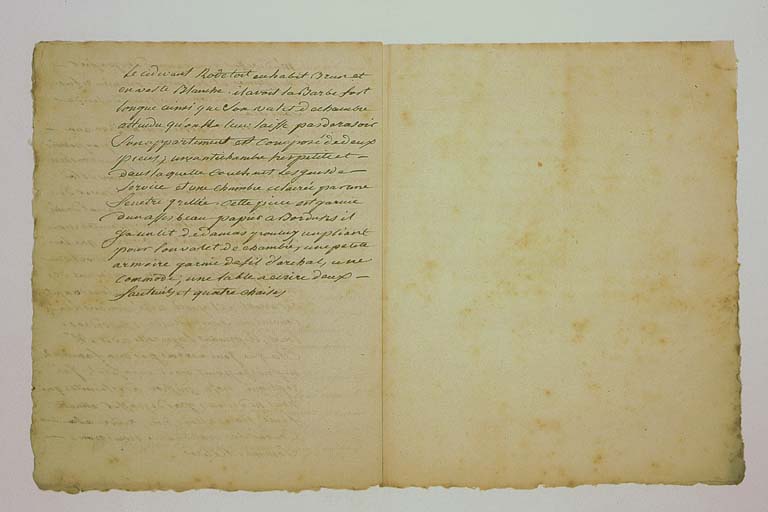 Le cidevant Roi etoit en habit Brun et
en veste Blanche. il avoit la Barbe fort
longue ainsi que Son valet de chambre
attendu qu'on ne leur laisse pas de rasoir
Son appartement est Composé de deux
pieces, une antichambre tres petite et
dans laquelle Couchent les gens de
Service et une chambre eclairée par une
fenetre grillée. Cette piece est garnie
d'un assés beau papier a Bordures il
y a un lit de damas un pliant
pour Son valet de chambre, une petite
armoire garnie de fil d'archal, une
Commode, une table a ecrire deux
fauteuils et quatre chaises